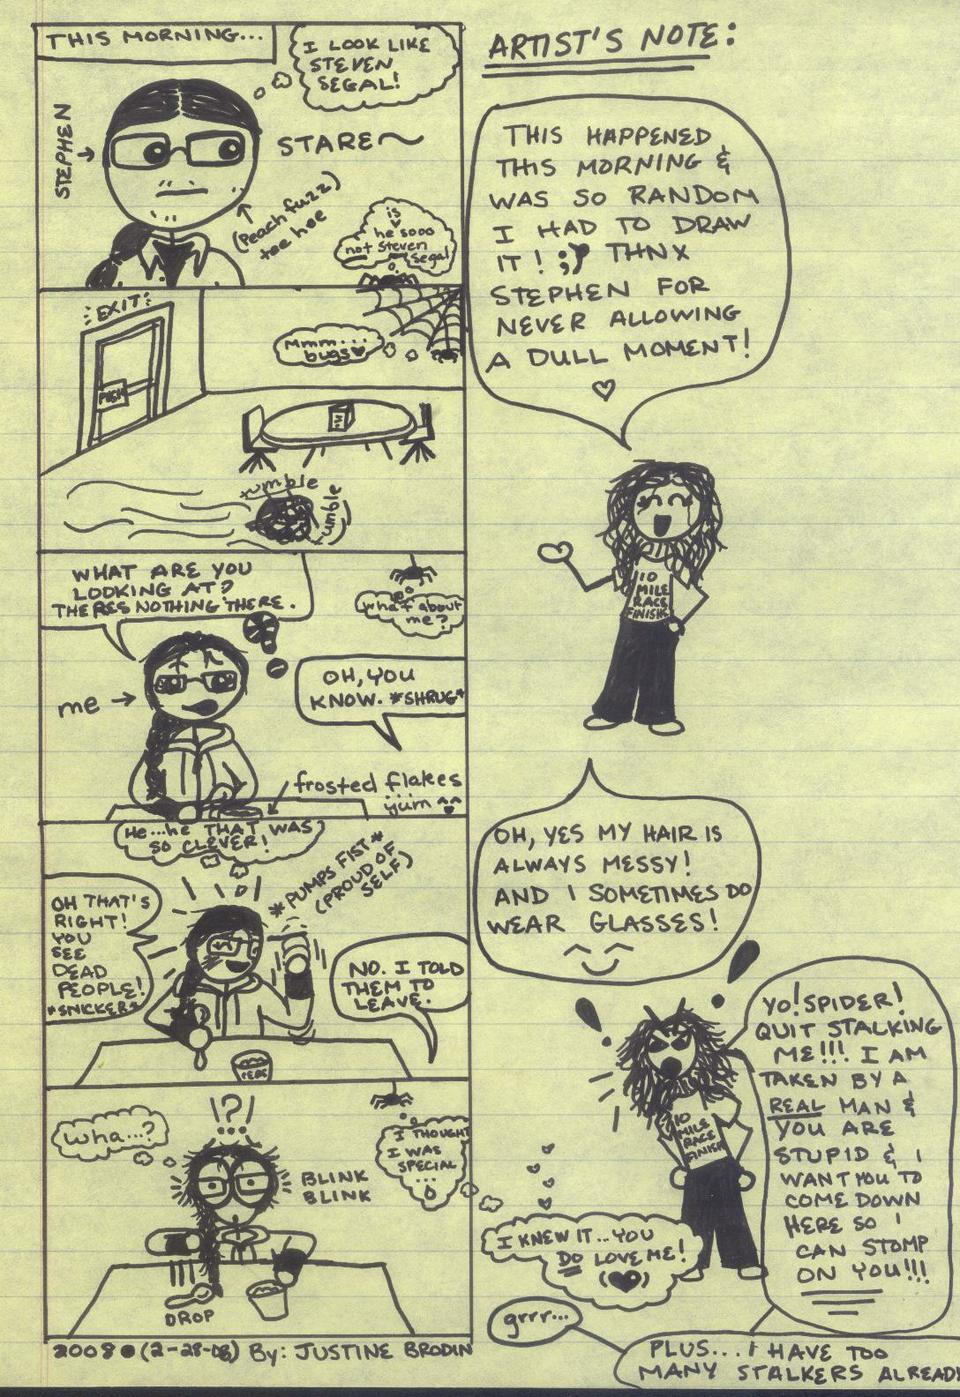 THIS MORNING...
I LOOK LIKE
STEVEN
SEGAL!
STEPHEN
STARE~
(Peach fuzz)
tee hee
is
he sooo
not Steven
Segal
EXIT
Mmm...
bugs
PUSH
rumble
umble
WHAT ARE YOU
LOOKING AT?
THERES NOTHING THERE.
what about
me?
me
OH, YOU
KNOW. *SHRUG*
frosted flakes
yum ^^
He...he THAT WAS
SO CLEVER!
*PUMPS FIST*
(PROUD OF
SELF)
OH THAT'S
RIGHT!
YOU
SEE
DEAD
PEOPLE!
*SNICKER*
NO. I TOLD
THEM TO
LEAVE.
wha...?
!?!
...
I THOUGHT
I WAS
SPECIAL
...
BLINK
BLINK
DROP
2008 (2-28-08) By: JUSTINE BRODIN
ARTIST'S NOTE:
THIS HAPPENED
THIS MORNING &
WAS SO RANDOM
I HAD TO DRAW
IT! ;P THNX
STEPHEN FOR
NEVER ALLOWING
A DULL MOMENT!
10
MILE
RACE
FINISH
OH, YES MY HAIR IS
ALWAYS MESSY!
AND I SOMETIMES DO
WEAR GLASSES!
YO! SPIDER!
QUIT STALKING
ME!!! I AM
TAKEN BY A
REAL MAN &
YOU ARE
STUPID & I
WANT YOU TO
COME DOWN
HERE SO I
CAN STOMP
ON YOU!!!
10
MILE
RACE
FINISH
I KNEW IT...YOU
DO LOVE ME!
grrr...
PLUS... I HAVE TOO
MANY STALKERS ALREADY